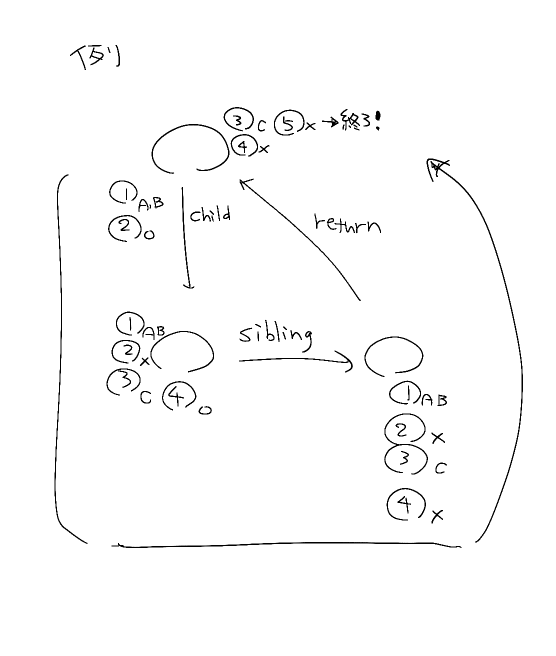 例
③C ⑤x→終了!
④x
①A,B
②o
child
return
①AB
②x
③C ④o
sibling
①AB
②x
③C
④x